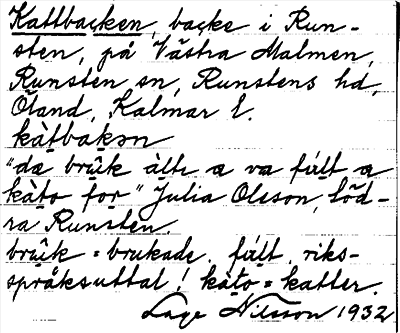 Kattbacken, backe i Run-
sten, på Västra Malmen,
Runsten sn, Runstens hd,
Öland, Kalmar l.
kàtbakən
"da brûk àltɩ a va fúlt a
kàtɷ fɷr" Julia Olsson, Söd-
ra Runsten.
brûk = brukade. fúlt, riks-
språksuttal! kàtɷ = katter.
Lage Nilsson 1932